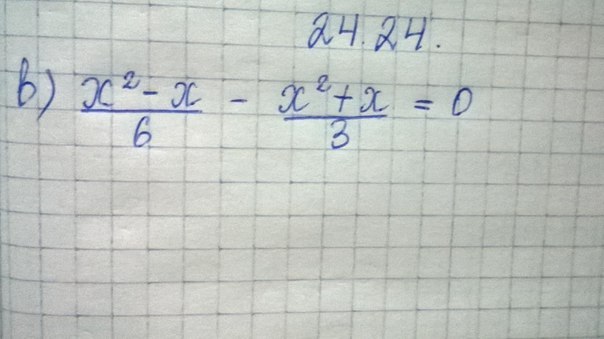 24.24.
в) x² - x / 6 - x² + x / 3 = 0